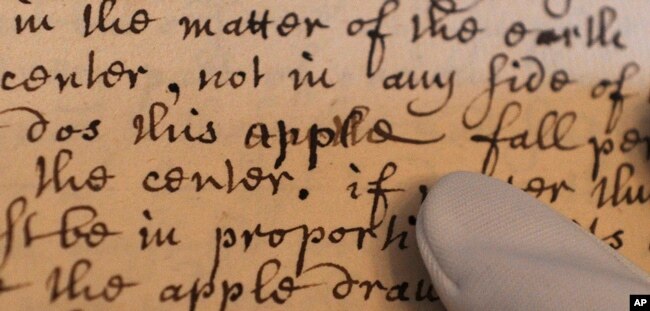 in the matter of the earth
center, not in any side of
dos this apple fall per
the center. if
st be in proporti
the apple draw
AP